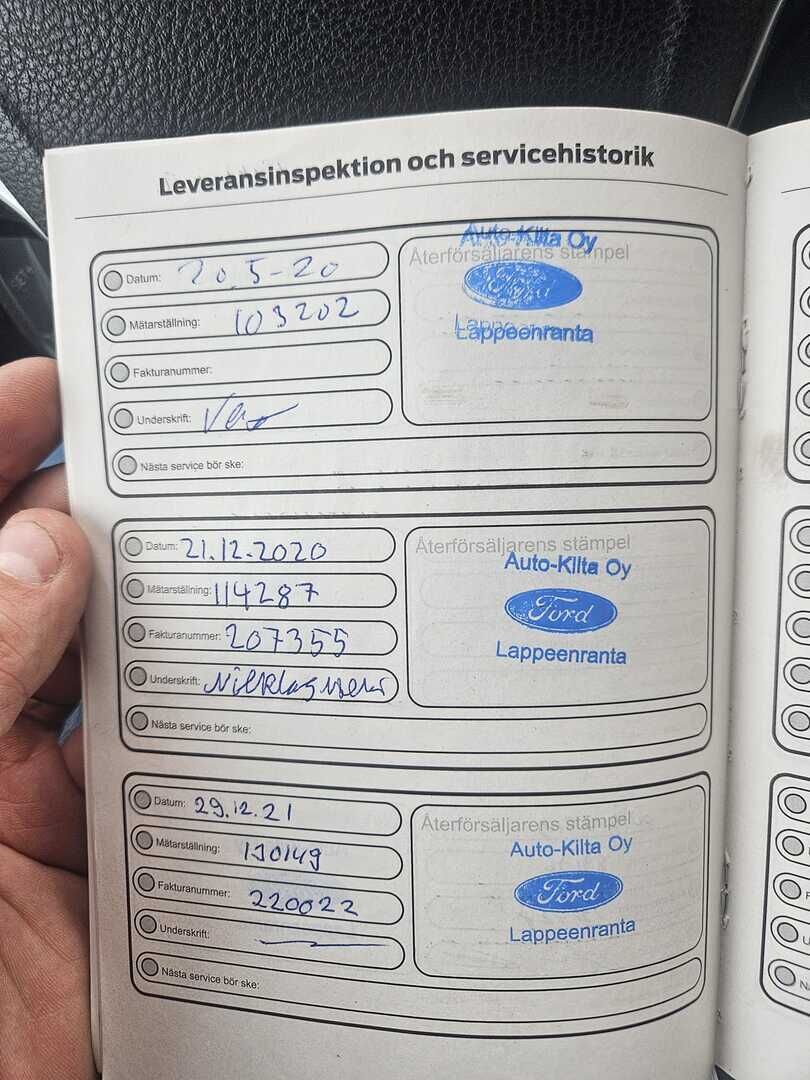 Leveransinspektion och servicehistorik
Datum: 20.5-20
Mätarställning: 103202
Fakturanummer:
Underskrift:
Nästa service bör ske:
Återförsäljarens stämpel
Auto-Kilta Oy
Ford
Lappeenranta
Datum: 21.12.2020
Mätarställning: 114287
Fakturanummer: 207355
Underskrift:
Nästa service bör ske:
Återförsäljarens stämpel
Auto-Kilta Oy
Ford
Lappeenranta
Datum: 29.12.21
Mätarställning: 130149
Fakturanummer: 220022
Underskrift:
Nästa service bör ske:
Återförsäljarens stämpel
Auto-Kilta Oy
Ford
Lappeenranta